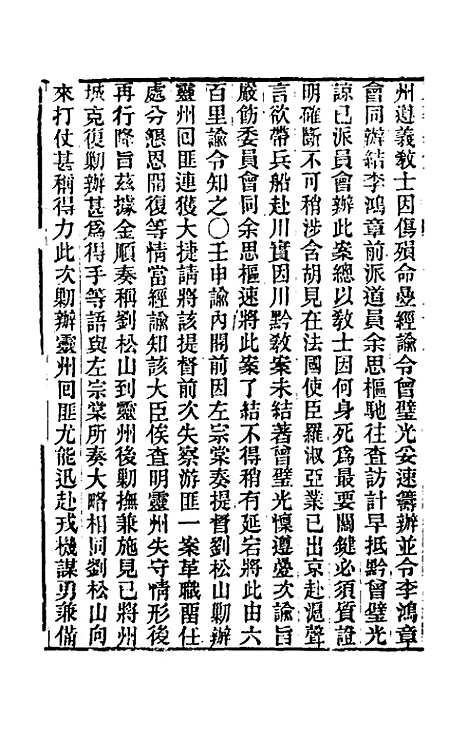 州遵義教士因傷殞命疊經諭令曾璧光妥速籌辦並令李鴻章
會同辦結李鴻章前派道員余思樞馳往查訪計早抵黔曾璧光
諒已派員會辦此案總以教士因何身死爲最要關鍵必須質證
明確斷不可稍涉含胡見在法國使臣羅淑亞業已出京赴滬聲
言欲帶兵船赴川實因川黔教案未結著曾璧光懍遵疊次諭旨
嚴飭委員會同余思樞速將此案了結不得稍有延宕將此由六
百里諭令知之〇壬申諭內閣前因左宗棠奏提督劉松山勦辦
靈州回匪連獲大捷請將該提督前次失察游匪一案革職留任
處分懇恩開復等情當經諭知該大臣俟查明靈州失守情形後
再行降旨茲據金順奏稱劉松山到靈州後勦撫兼施見已將州
城克復勦辦甚爲得手等語與左宗棠所奏大略相同劉松山向
來打仗甚稱得力此次勦辦靈州回匪尤能迅赴戎機謀勇兼備